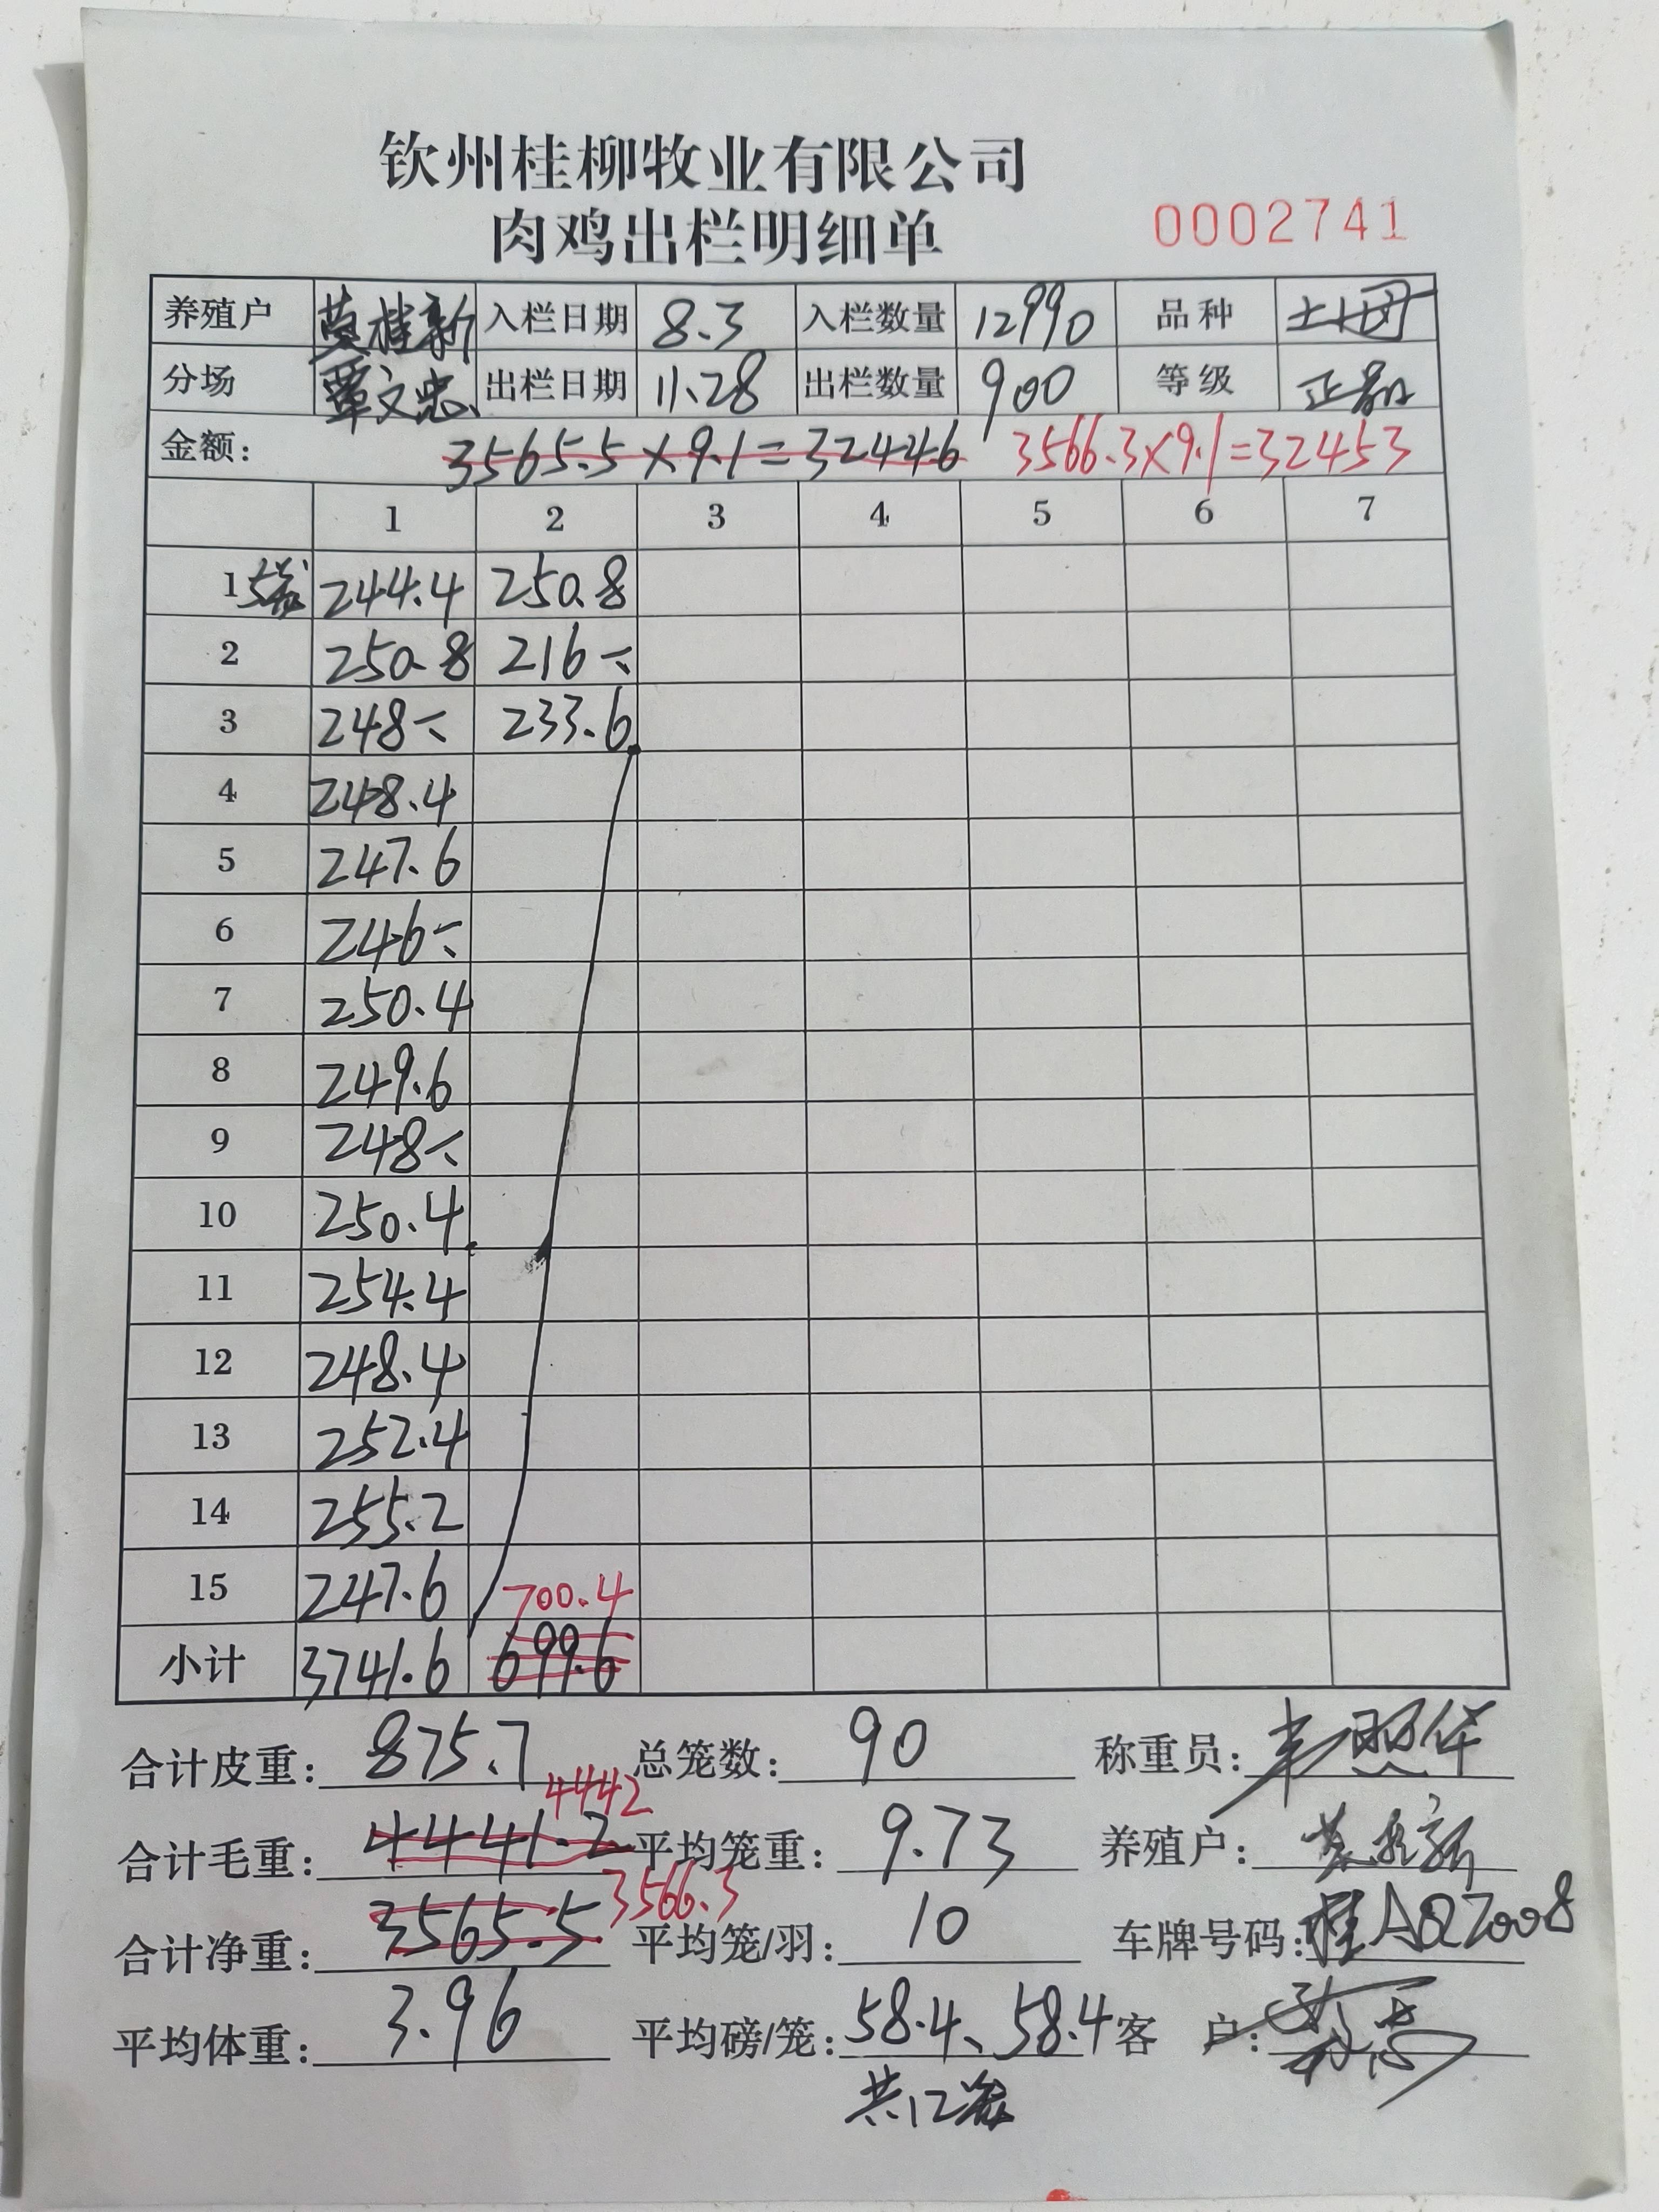 钦州桂柳牧业有限公司
肉鸡出栏明细单 0002741
养殖户 莫桂新 入栏日期 8.3 入栏数量 12990 品种 土
分场 覃文忠 出栏日期 11.28 出栏数量 900 等级 正品
金额: 3565.5×9.1=32446 3566.3×9.1=32453
1 2 3 4 5 6 7
1 5笼 244.4 250.8
2 250.8 216
3 248 233.6
4 248.4
5 247.6
6 246
7 250.4
8 249.6
9 248
10 250.4
11 254.4
12 248.4
13 252.4
14 255.2
15 247.6 700.4
小计 3741.6 699.6
合计皮重: 875.7 总笼数: 90 称重员:
合计毛重: 4441.2 4442 平均笼重: 9.73 养殖户: 莫桂新
合计净重: 3565.5 3566.3 平均笼/羽: 10 车牌号码: 桂AQZ008
平均体重: 3.96 平均磅/笼: 58.4、58.4 客 户:
共12笼